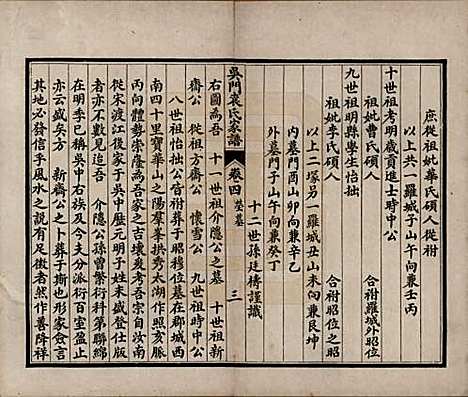 庶從祖妣華氏碩人從祔
以上共一羅城子山午向兼壬丙
十世祖考明歲貢進士時中公
祖妣曹氏碩人 合祔羅城外昭位
九世祖考明縣學生怡拙
祖妣李氏碩人 合祔昭位之昭
以上二塚另一羅城丑山未向兼艮坤
內墓門酉山卯向兼辛乙
外墓門子山午向兼癸丁
十二世孫廷檮謹識
吳門袁氏家譜 卷四 塋墓 三
右圖為吾 十一世祖介隱公之墓 十世祖新
齋公 從祖方齋公 懷雪公 九世祖時中公
八世祖怡拙公皆祔葬于昭穆位墓在郡城西
南四十里寶華山之陽羣峯拱秀太湖作朝山
丙向體勢崇隆為吾家之吉壤爰考吾宗自汝南
從宋渡江後家于吳中歷元明子姓未盛登仕版
者亦不數見追吾 介隱公孫曾繁衍科第聯綿
在明季已稱吳中右族及今支分派衍百室盈止
亦云盛矣方 新齋公之卜葬也形家僉言
其地必發信乎風水之說有足徵者然作善降祥